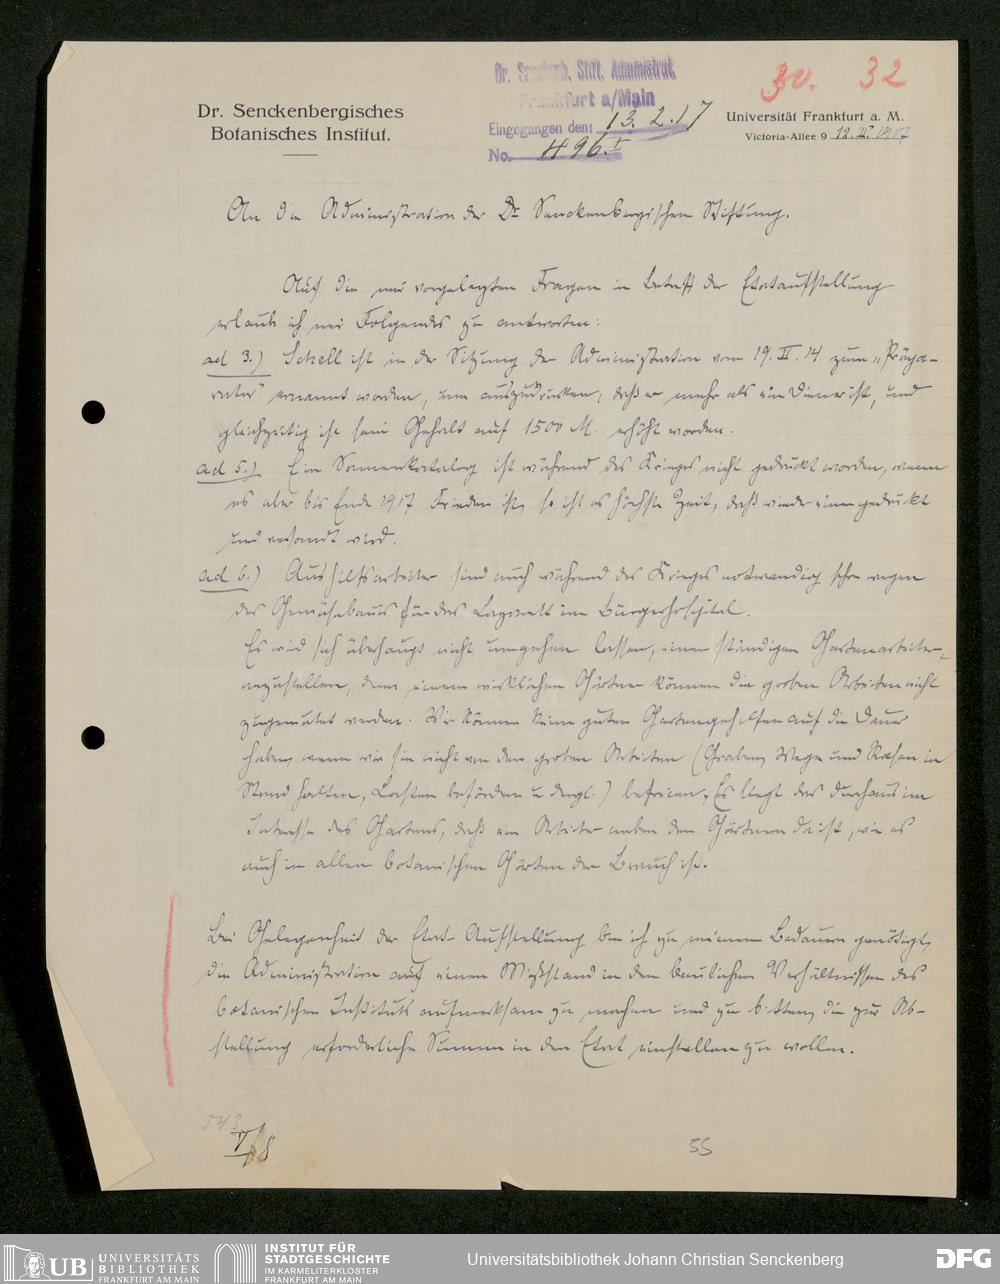 Dr. Senckenb. Stift. Administrat.
Frankfurt a/Main
Eingegangen den: 13. 2. 17
No. 496. I
32
Dr. Senckenbergisches
Botanisches Institut.
Universität Frankfurt a. M.
Victoria-Allee 9 12. II. 1917
An die Administration der Dr. Senckenbergischen Stiftung.
Auf die mir vorgelegten Fragen in betreff der Etataufstellung
erlaube ich mir Folgendes zu antworten:
ad 3.) Schell ist in der Sitzung der Administration vom 19. II. 14 zum „Präpa-
rator" ernannt worden, um auszudrücken, daß er mehr als ein Diener ist, und
gleichzeitig ist sein Gehalt auf 1500 M. erhöht worden.
ad 5.) Ein Samenkatalog ist während des Krieges nicht gedruckt worden, wenn
es aber bis Ende 1917 Frieden ist, so ist es höchste Zeit, daß wieder einer gedruckt
und versandt wird.
ad 6.) Aushilfsarbeiter sind auch während des Krieges notwendig schon wegen
des Gemüsebaues für das Lazarett im Bürgerhospital.
Es wird sich überhaupt nicht umgehen lassen, einen ständigen Gartenarbeiter
anzustellen, denn einem wirklichen Gärtner können die groben Arbeiten nicht
zugemutet werden. Wir können keine guten Gartengehilfen auf die Dauer
haben, wenn wir sie nicht von den groben Arbeiten (Graben, Wege und Rasen in
Stand halten, Lasten befördern u dergl.) befreien. Es liegt das durchaus im
Interesse des Gartens, daß ein Arbeiter neben den Gärtnern da ist, wie es
auch in allen botanischen Gärten der Brauch ist.
Bei Gelegenheit der Etat-Aufstellung bin ich zu meinem Bedauern genötigt,
die Administration auf einen Mißstand in den baulichen Verhältnissen des
botanischen Instituts aufmerksam zu machen und zu bitten, die zur Ab-
stellung erforderliche Summe in den Etat einstellen zu wollen.
55
UB UNIVERSITÄTS
BIBLIOTHEK
FRANKFURT AM MAIN
INSTITUT FÜR
STADTGESCHICHTE
IM KARMELITERKLOSTER
FRANKFURT AM MAIN
Universitätsbibliothek Johann Christian Senckenberg
DFG